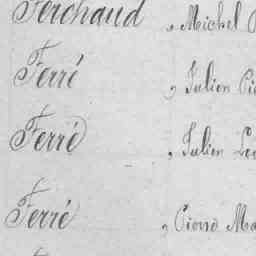 Ferchaud , Michel
Ferré , Julien
Ferré , Julien
Ferré , Pierre